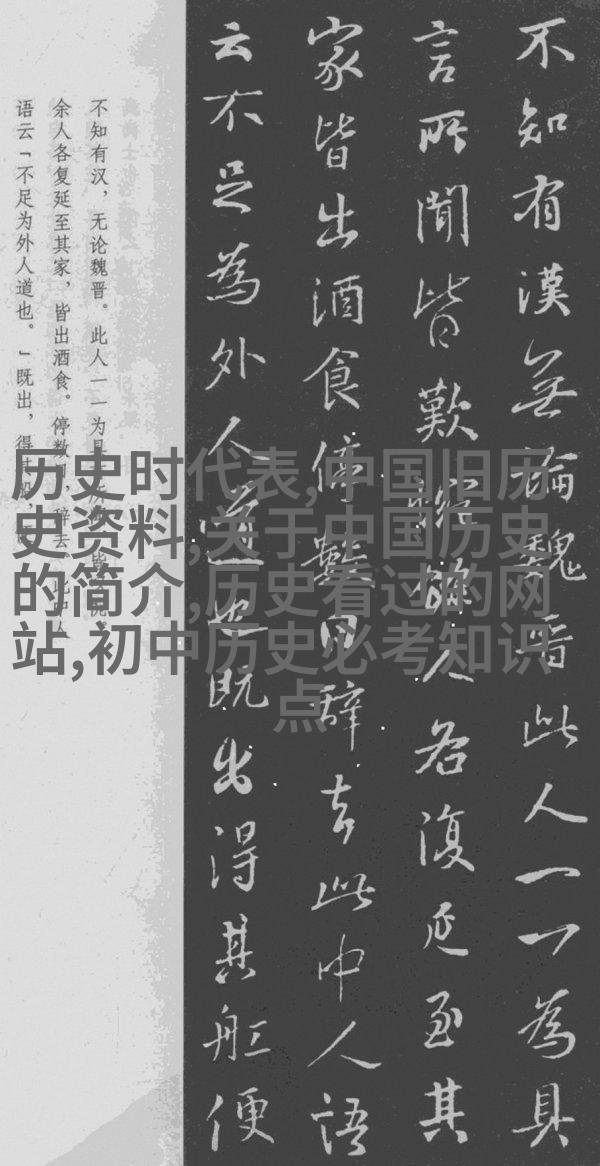 历史时代表,中国旧历
史资料,关于中国历史
的简介,历史看过的网
站,初中历史必考知识
点
不知有漢無論魏晋此人一一為具
言所聞皆歎人各復延至其
家皆出酒食停數日辭去此中人語
云不足為外人道也既出得其舡便
不知有汉，无论魏晋。此人一一为具
余人各复延至其家，皆出酒食。停数日，辞去。此中人
语云「不足为外人道也。」既出，得